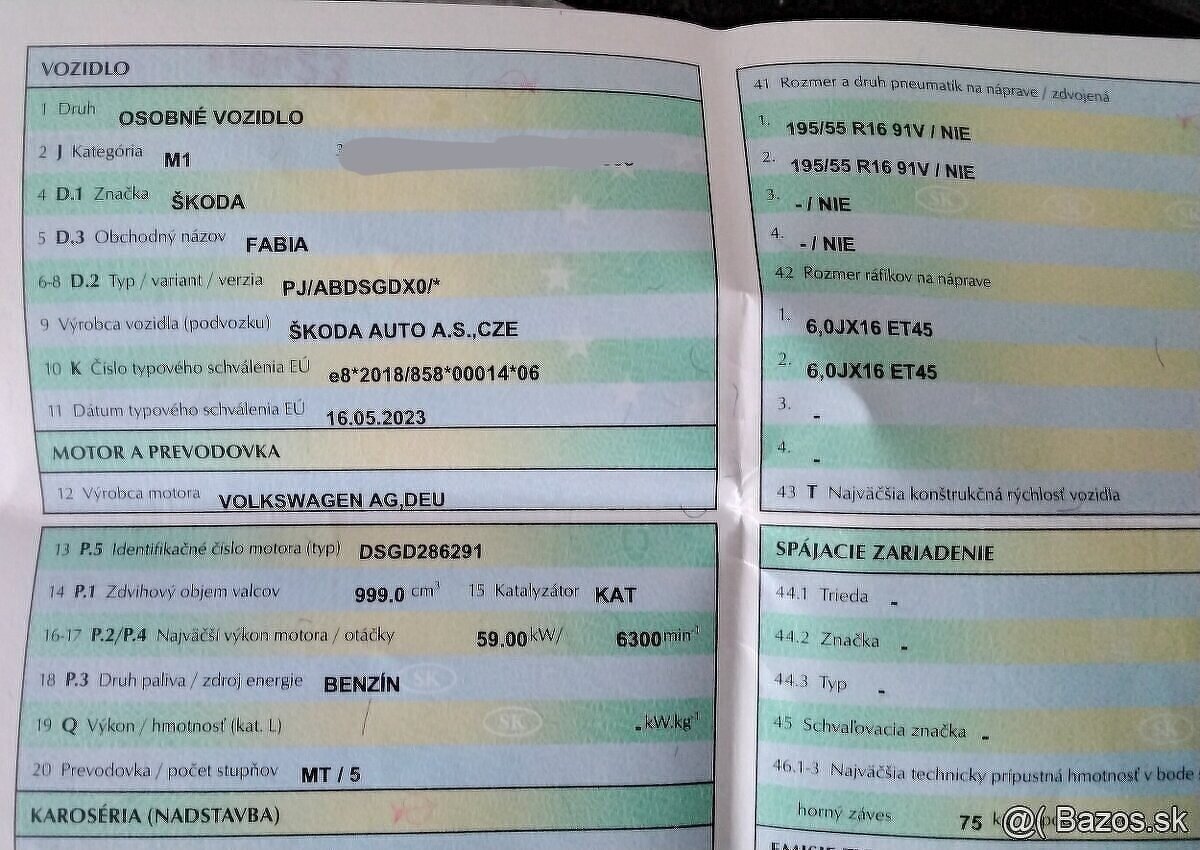 VOZIDLO
1 Druh OSOBNÉ VOZIDLO
2 J Kategória M1 3
4 D.1 Značka ŠKODA
5 D.3 Obchodný názov FABIA
6-8 D.2 Typ / variant / verzia PJ/ABDSGDX0/*
9 Výrobca vozidla (podvozku) ŠKODA AUTO A.S.,CZE
10 K Číslo typového schválenia EÚ e8*2018/858*00014*06
11 Dátum typového schválenia EÚ 16.05.2023
MOTOR A PREVODOVKA
12 Výrobca motora VOLKSWAGEN AG,DEU
13 P.5 Identifikačné číslo motora (typ) DSGD286291
14 P.1 Zdvihový objem valcov 999.0 cm³ 15 Katalyzátor KAT
16-17 P.2/P.4 Najväčší výkon motora / otáčky 59.00 kW/ 6300 min⁻¹
18 P.3 Druh paliva / zdroj energie BENZÍN
19 Q Výkon / hmotnosť (kat. L) - kW.kg⁻¹
20 Prevodovka / počet stupňov MT / 5
KAROSÉRIA (NADSTAVBA)
41 Rozmer a druh pneumatík na náprave / zdvojená
1. 195/55 R16 91V / NIE
2. 195/55 R16 91V / NIE
3. - / NIE
4. - / NIE
42 Rozmer ráfikov na náprave
1. 6,0JX16 ET45
2. 6,0JX16 ET45
3. -
4. -
43 T Najväčšia konštrukčná rýchlosť vozidla
SPÁJACIE ZARIADENIE
44.1 Trieda -
44.2 Značka -
44.3 Typ -
45 Schvaľovacia značka -
46.1-3 Najväčšia technicky prípustná hmotnosť v bode
horný záves 75
@( Bazos.sk